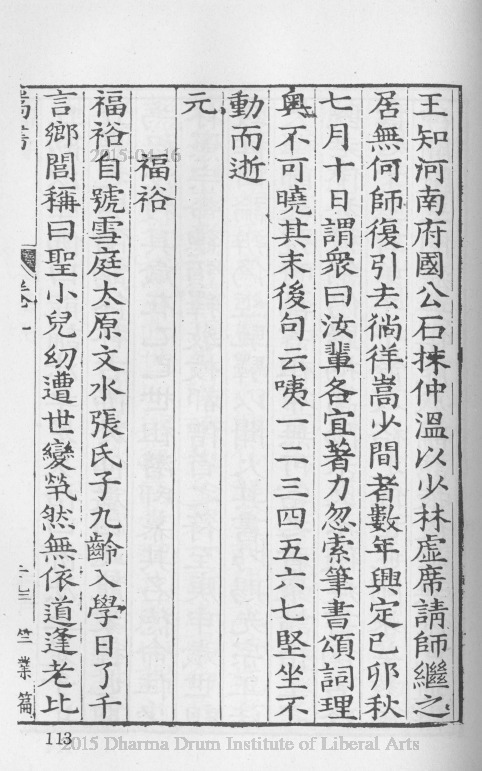 王知河南府國公石抹仲溫以少林虛席請師繼之
居無何師復引去徜徉嵩少間者數年興定己卯秋
七月十日謂衆曰汝輩各宜著力忽索筆書頌詞理
奧不可曉其末後句云咦一二三四五六七堅坐不
動而逝
元
福裕
福裕自號雪庭太原文水張氏子九齡入學日了千
言鄉閭稱曰聖小兒幼遭世變煢然無依道逢老比
嵩書
卷一
竺業篇
2015-04-16
113
2015 Dharma Drum Institute of Liberal Arts